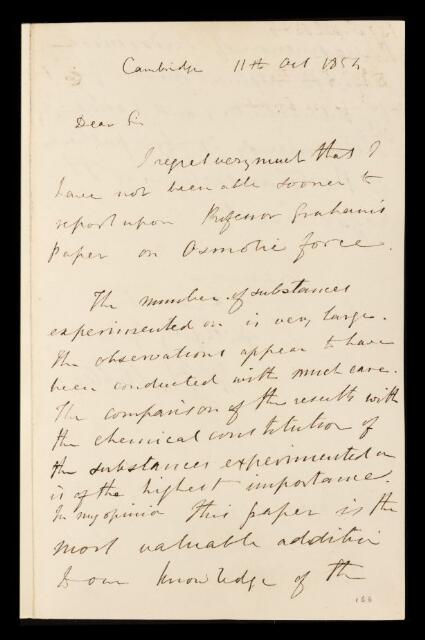 Cambridge 11th Oct 1854
Dear Sir
I regret very much that I
have not been able sooner to
report upon Professor Graham's
paper on Osmotic force.
The number of substances
experimented on is very large.
The observations appear to have
been conducted with much care.
The comparison of the results with
the chemical constitution of
the substances experimented on
is of the highest importance.
In my opinion this paper is the
most valuable addition
to our knowledge of the